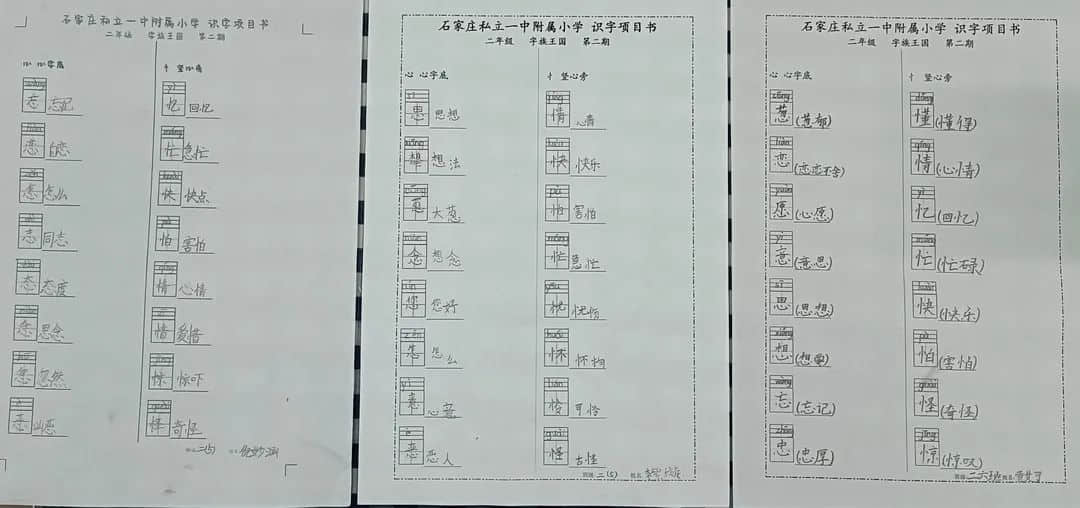 石家庄私立一中附属小学 识字项目书
二年级 字族王国 第二期
心 心字底
忄 竖心旁
忘 忘记
忆 回忆
恋
忙 急忙
怎 怎么
快 快点
志 同志
怕 害怕
态 态度
情 心情
念 思念
惜 爱惜
忽 忽然
惊 惊吓
恶
怪 奇怪
二(5)
石家庄私立一中附属小学 识字项目书
二年级 字族王国 第二期
心 心字底
忄 竖心旁
思 思想
情 心情
想 想法
快 快乐
葱 大葱
怕 害怕
念 想念
忙 急忙
您 您好
怎 怎么
怀 怀抱
意 心意
怜 可怜
恋人
怪 古怪
班级 二(5) 姓名
石家庄私立一中附属小学 识字项目书
二年级 字族王国 第二期
心 心字底
忄 竖心旁
葱
懂 (懂得)
恋 (恋恋不舍)
情 (心情)
愿 (心愿)
忆 (回忆)
意 (意思)
忙 (忙碌)
思 (思想)
快 (快乐)
想
怕 (害怕)
忘 (忘记)
怪 (奇怪)
忠 (忠厚)
惊 (惊叹)
班级 二六班 姓名